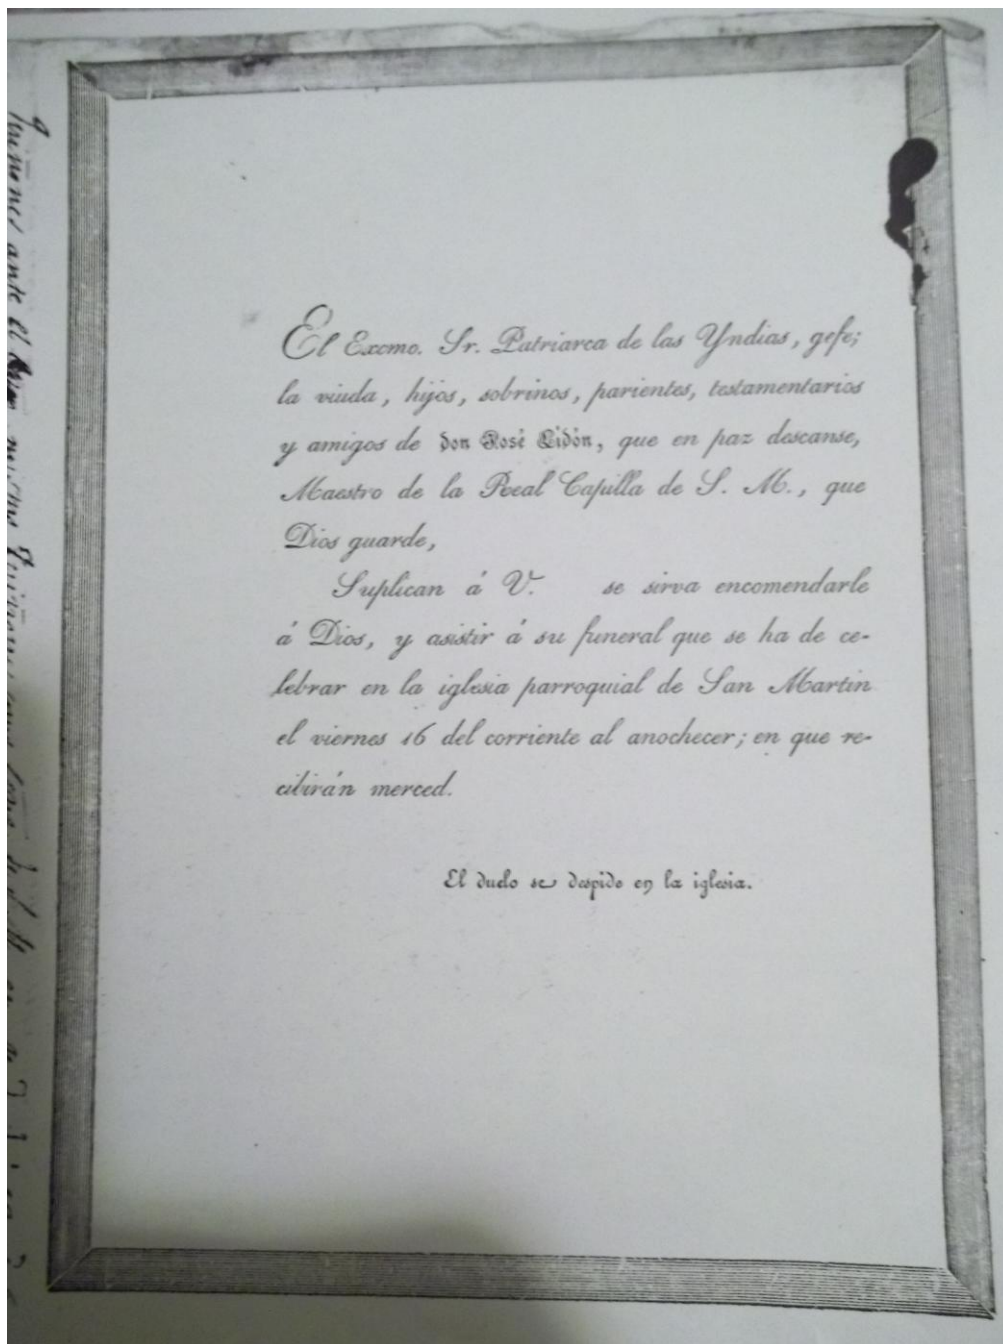 El Excmo. Sr. Patriarca de las Yndias, gefe;
la viuda, hijos, sobrinos, parientes, testamentarios
y amigos de don José Lidón, que en paz descanse,
Maestro de la Real Capilla de S. M., que
Dios guarde,
Suplican á V. se sirva encomendarle
á Dios, y asistir á su funeral que se ha de ce-
lebrar en la iglesia parroquial de San Martin
el viernes 16 del corriente al anochecer; en que re-
cibirán merced.
El duelo se despide en la iglesia.
ante el